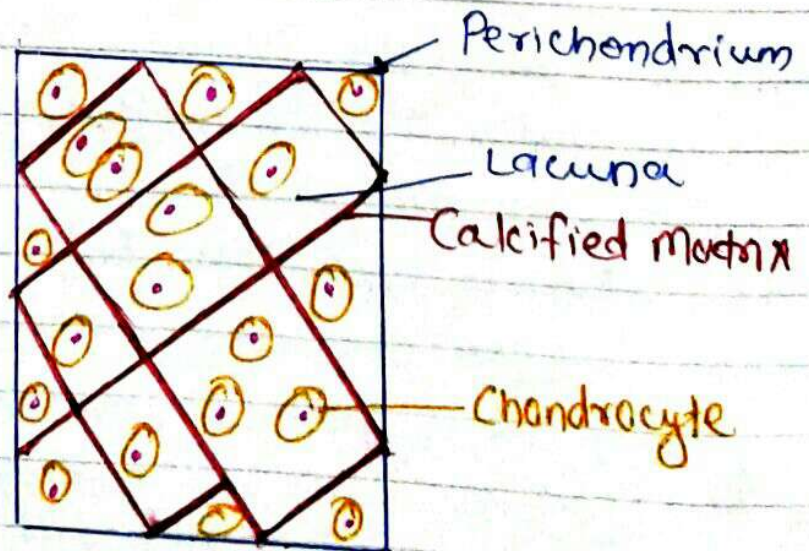 Perichondrium
Lacuna
Calcified Matrix
Chondrocyte